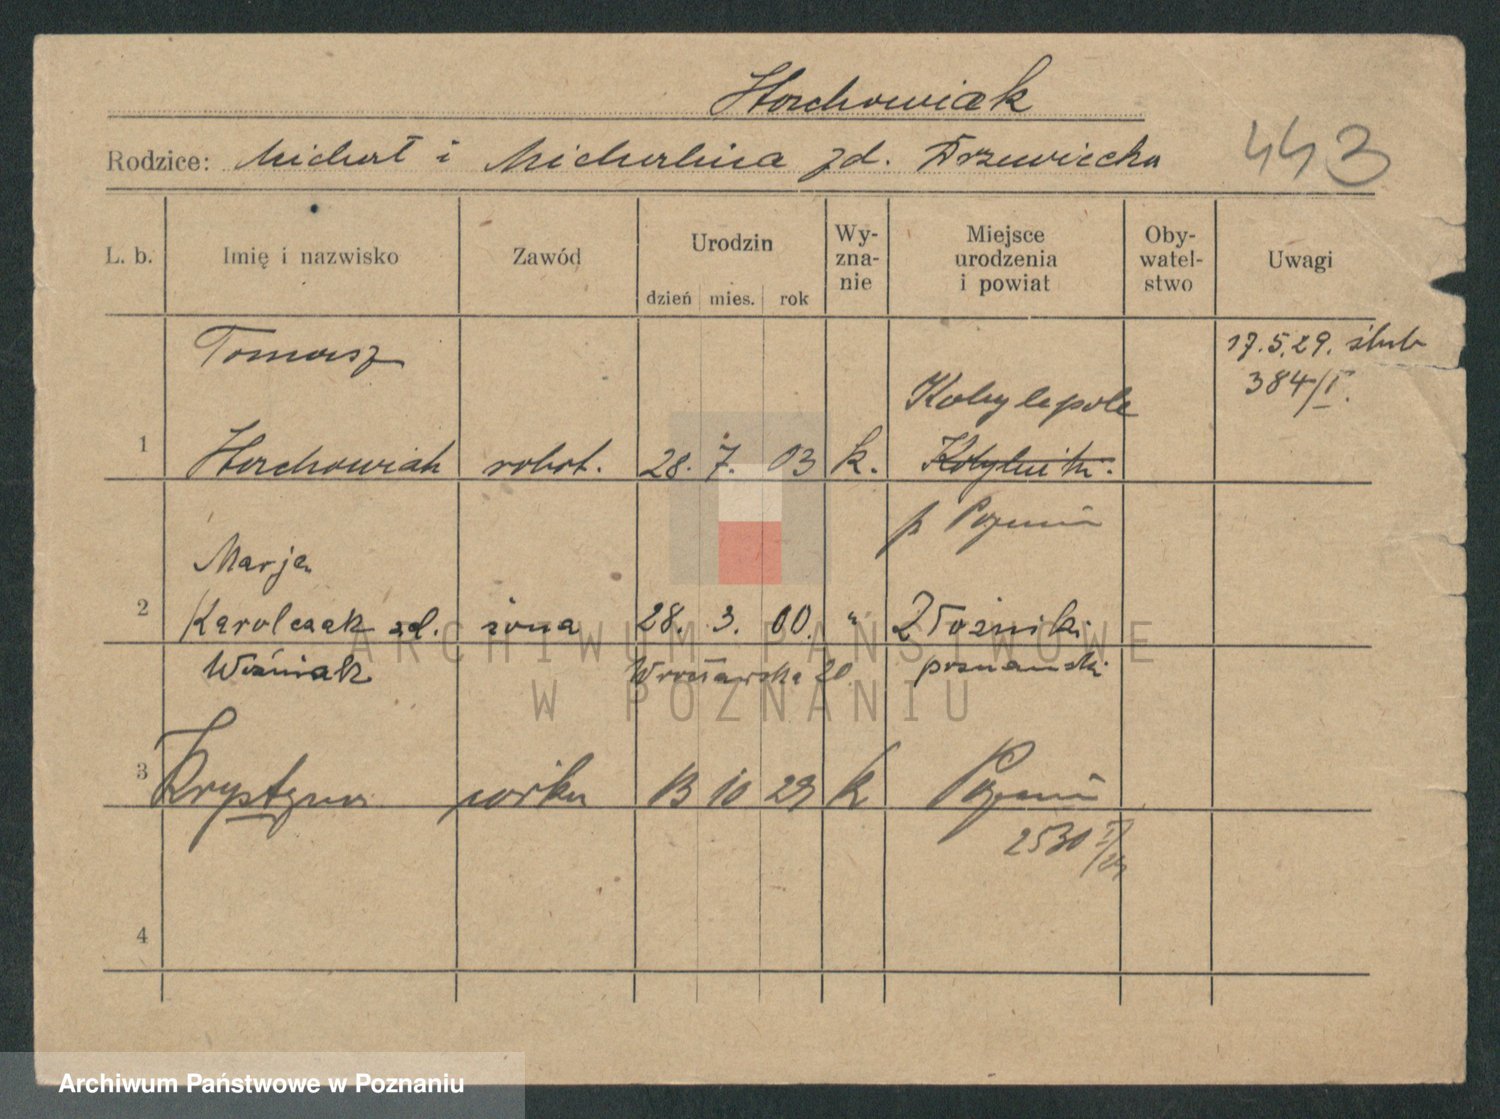 Horchowiak
Rodzice: Michał i Michalina zd. Drzewiecka
443
L. b. Imię i nazwisko Zawód Urodzin Wy-zna-nie Miejsce urodzenia i powiat Oby-watel-stwo Uwagi
dzień mies. rok
Tomasz 17.5.29. ślub
Kobylepole 384/I.
1 Horchowiak robot. 28. 7. 03 k. Kobylniki.
p Poznań
Marja
2 Karolczak zd. żona 28. 3. 00. " Złotniki
ARCHIWUM PAŃSTWOWE
Woźniak Wrocławska 20 poznański
W POZNANIU
3 Krystyna córka 13 10 29 k Poznań
2530
4
Archiwum Państwowe w Poznaniu